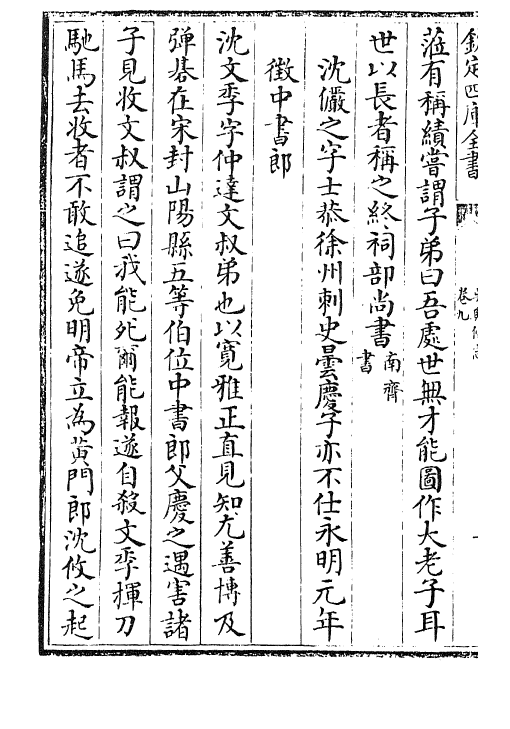 欽定四庫全書
卷九
蒞有稱績嘗謂子弟曰吾處世無才能圖作大老子耳
世以長者稱之終祠部尚書南齊書
沈儼之字士恭徐州刺史曇慶子亦不仕永明元年
徵中書郎
沈文季字仲達文叔弟也以寛雅正直見知尤善博及
彈棊在宋封山陽縣五等伯位中書郎父慶之遇害諸
子見收文叔謂之曰我能死爾能報遂自殺文季揮刀
馳馬去收者不敢追遂免明帝立為黃門郎沈攸之起